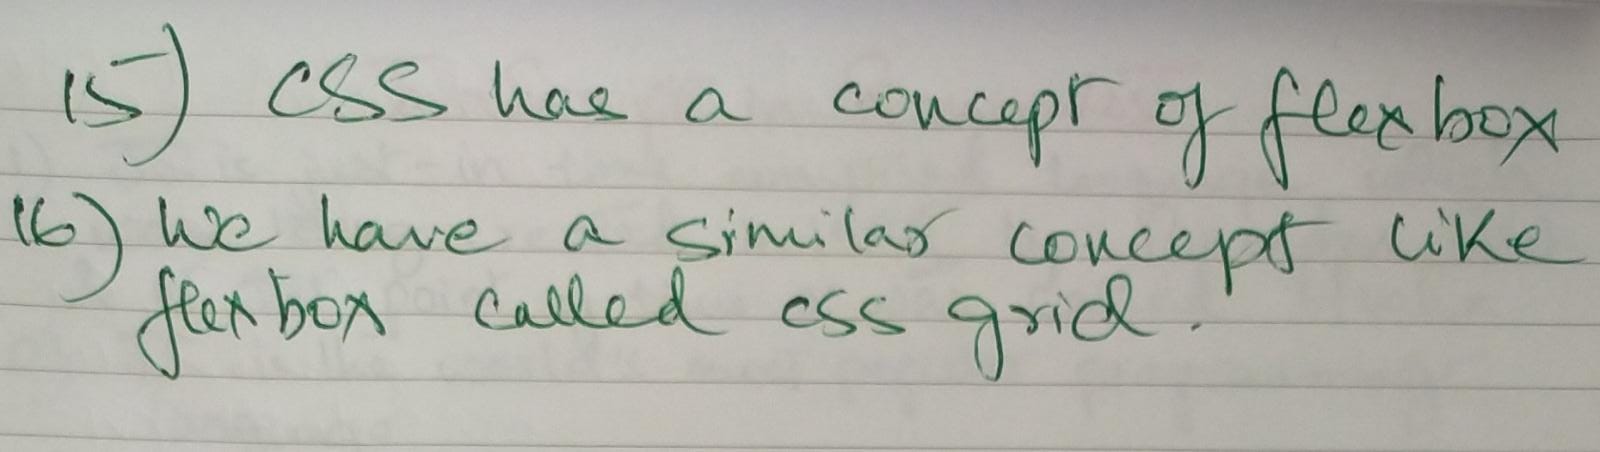 15) CSS has a concept of flexbox
16) We have a similar concept like
flexbox called css grid.